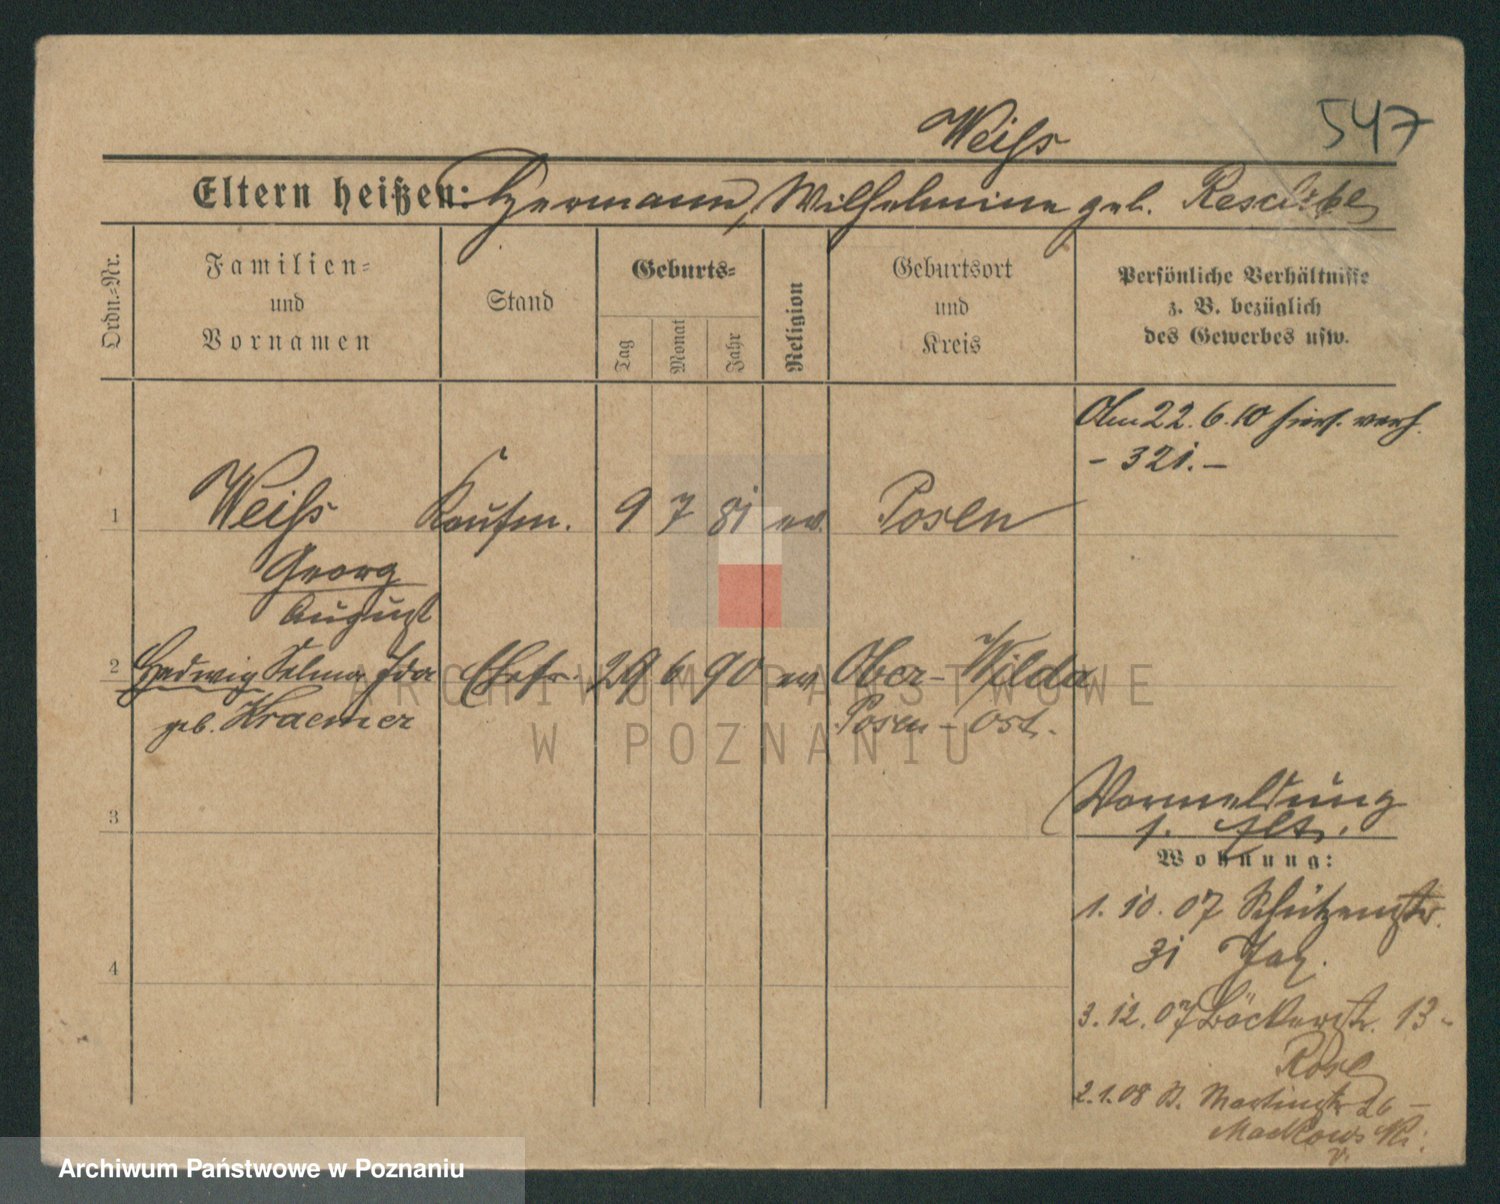 Weiß
547
Eltern heißen: Hermann, Wilhelmine geb. Reschke
Ordn.-Nr.
Familien-
und
Vornamen
Stand
Geburts-
Tag
Monat
Jahr
Religion
Geburtsort
und
Kreis
Persönliche Verhältnisse
z. B. bezüglich
des Gewerbes usw.
Am 22.6.10 hier. verh.
- 321. -
1 Weiß Kaufm. 9 7 81 ev. Posen
Georg
August
2 Hedwig Selma Ida Ehefr. 29 6 90 ev Ober-Wilda
geb. Kraemer Posen-Ost.
3
Vormeldung
Wohnung:
1. 10. 07 Schützenstr.
31
4
3. 12. 07 Bäckerstr. 13 -
Rose
2.1.08 St. Martinstr 26 -
Mackowski
ARCHIWUM PAŃSTWOWE
W POZNANIU
Archiwum Państwowe w Poznaniu